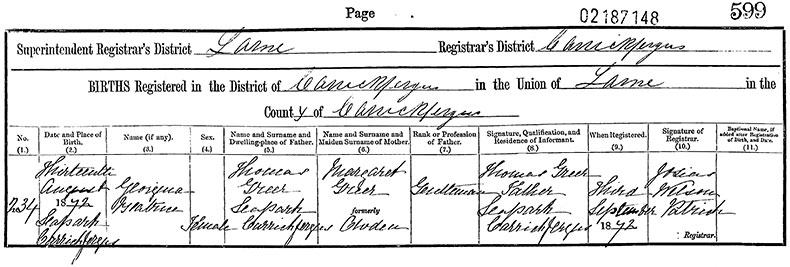 Page 02187148 599
Superintendent Registrar's District Larne Registrar's District Carrickfergus
BIRTHS Registered in the District of Carrickfergus in the Union of Larne in the
County of Carrickfergus
No. Date and Place of Birth. Name (if any). Sex. Name and Surname and Dwelling-place of Father. Name and Surname and Maiden Surname of Mother. Rank or Profession of Father. Signature, Qualification, and Residence of Informant. When Registered. Signature of Registrar. Baptismal Name, if added after Registration of Birth, and Date.
(1.) (2.) (3.) (4.) (5.) (6.) (7.) (8.) (9.) (10.) (11.)
Thirteenth Thomas Margaret Thomas Greer Josias
August Georgina Greer Greer Gentleman Father Third Wilson
234 1872 Beatrice Seapark formerly Seapark September Patrick
Seapark Female Carrickfergus Owden Carrickfergus 1872
Carrickfergus Registrar.